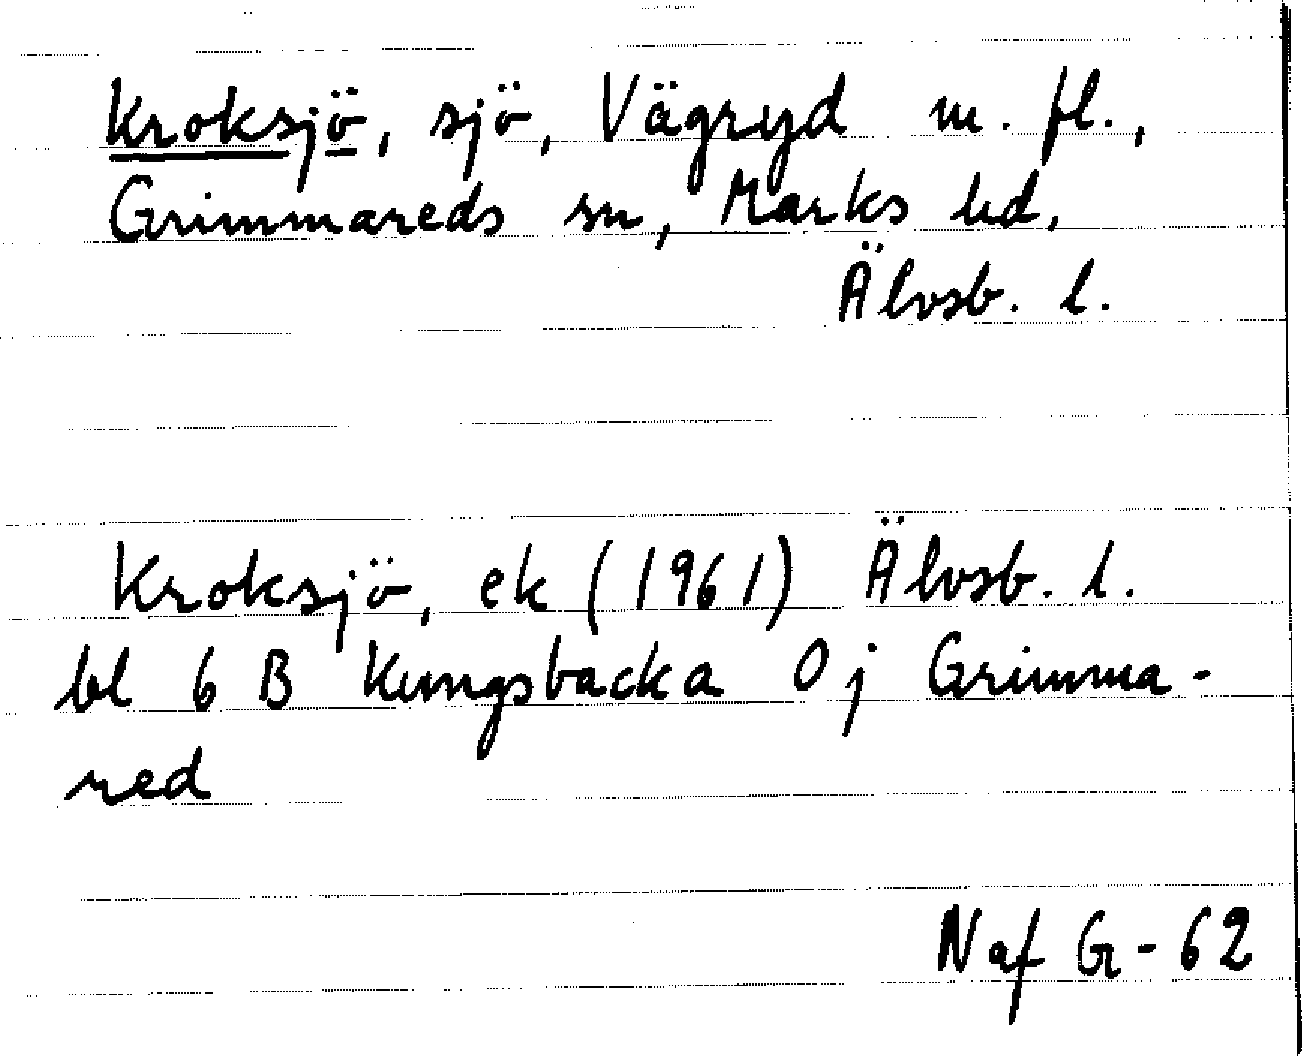 Kroksjö, sjö, Vägryd m. fl.,
Grimmareds sn, Marks hd,
Älvsb. l.
Kroksjö, ek (1961) Älvsb. l.
bl 6 B Kungsbacka 0 j Grimma-
red
Naf G-62